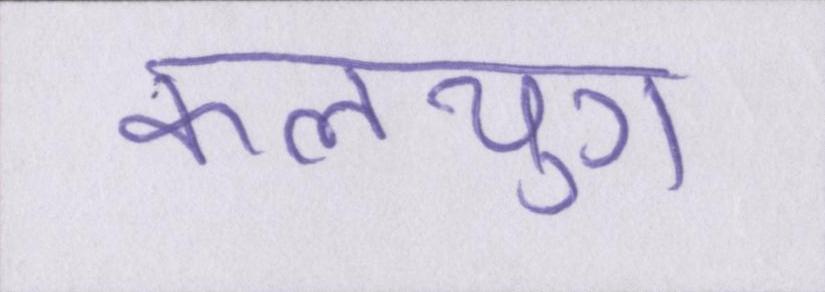 कलयुग